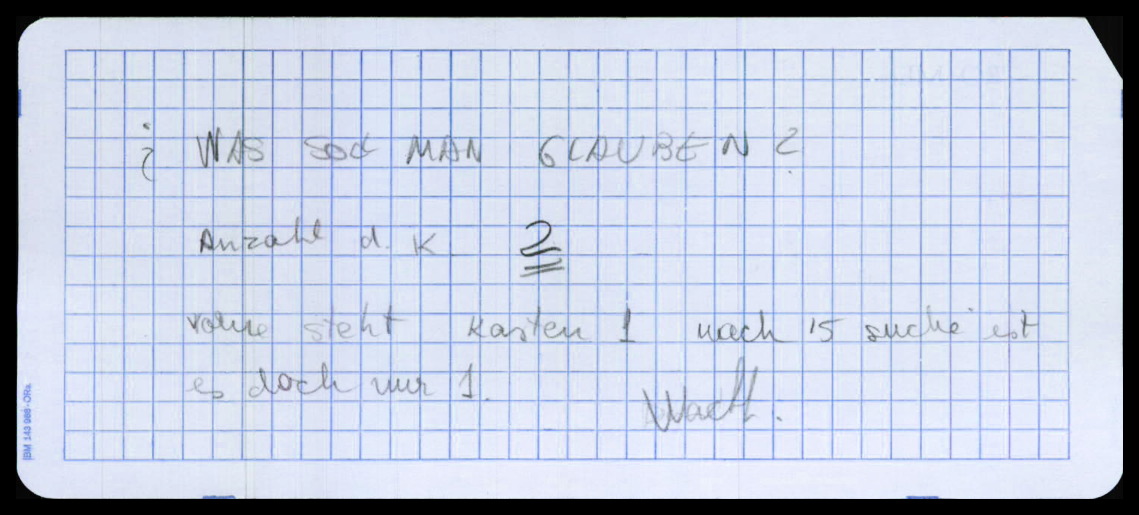 ¿ WAS SOLL MAN GLAUBEN ?
Anzahl d. K 2
vorne steht Kasten 1 nach 15 suche ist
es doch nur 1.
IBM 143 986 - ORX